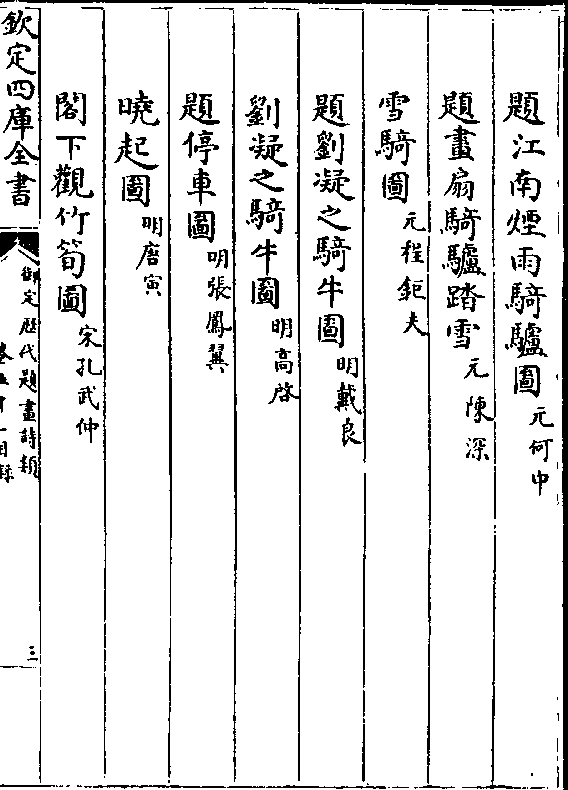 題江南煙雨騎驢圖元何中
題畫扇騎驢踏雪元陳深
雪騎圖元程鉅夫
題劉凝之騎牛圖明戴良
劉凝之騎牛圖明高啓
題停車圖明張鳳翼
曉起圖明唐寅
閣下觀竹筍圖宋孔武仲
欽定四庫全書
御定歷代題畫詩類
卷五十一目録
三